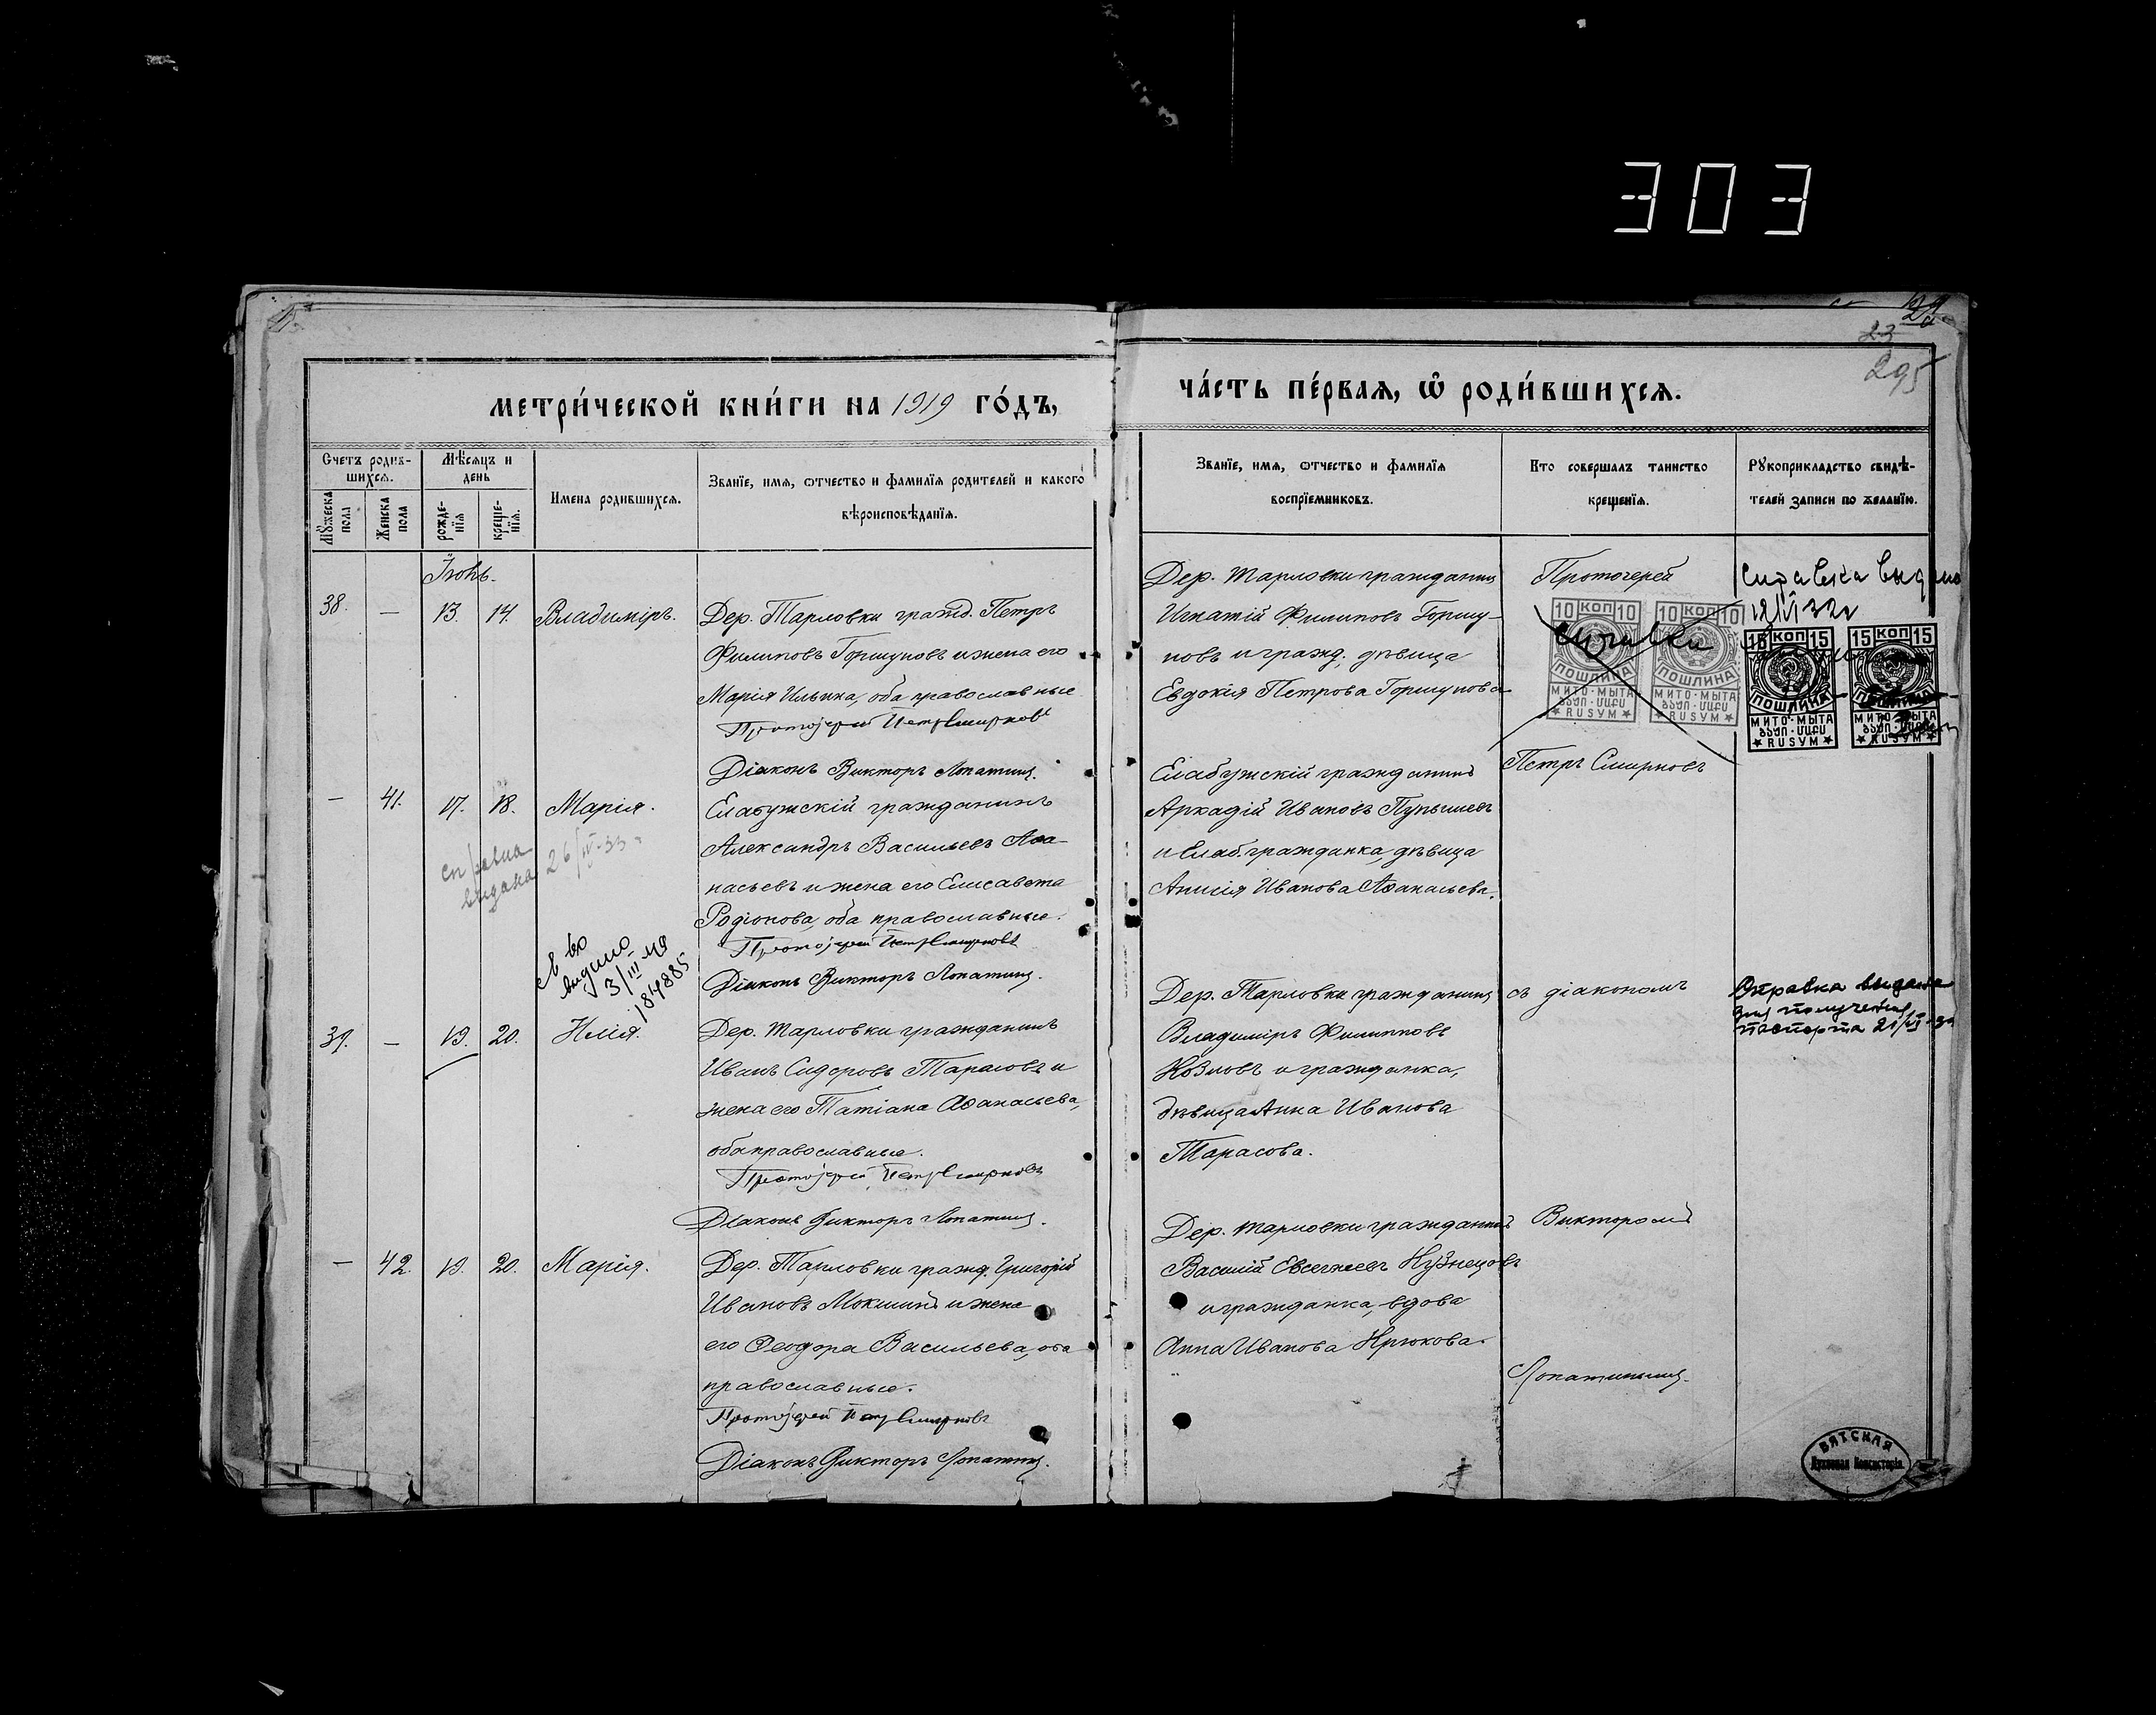 303
23
295
метри́ческой кни́ги на 1919 го́дъ,
ча́сть пе́рвая, ѡ҆ роди́вшихся.
Счетъ родив-
шихся.
Мѣсяцъ и
день
Мужеска
пола
Женска
пола
рожде-
нїя
креще-
нїя.
Имена родившихся.
Званїе, имя, ѻтчество и фамилїя родителей и какого
вѣроисповѣданїя.
Званїе, имя, ѻтчество и фамилїя
воспрїемниковъ.
Кто совершалъ таинство
крещенїя.
Рукоприкладство свидѣ-
телей записи по желанїю.
Іюнь.
38. — 13. 14. Владиміръ.
Дер. Тарловки гражд. Петръ
Филиповъ Горшуновъ и жена его
Марія Ильина, оба православные
Протоіерей Петр Смирновъ
Діаконъ Викторъ Лопатинъ.
Дер. Тарловки гражданинъ
Игнатій Филиповъ Горшу-
новъ и гражд. дѣвица
Евдокія Петрова Горшунова
Протоіерей
Справка выдана
справки
10 КОП 10
ПОШЛИНА
МИТО·МЫТА
RUSYM
10 КОП 10
ПОШЛИНА
МИТО·МЫТА
RUSYM
15 КОП 15
ПОШЛИНА
МИТО·МЫТА
RUSYM
15 КОП 15
ПОШЛИНА
МИТО·МЫТА
RUSYM
— 41. 17. 18. Марія.
справка
выдана 26/IV-33
Елабужскій гражданинъ
Александръ Васильевъ Аѳа-
насьевъ и жена его Елисавета
Родіонова, оба православные.
Протоіерей Петр Смирновъ
Діаконъ Викторъ Лопатинъ.
Елабужскій гражданинъ
Аркадій Ивановъ Пупышевъ
и Елаб. гражданка, дѣвица
Анисія Иванова Аѳанасьева.
Петръ Смирновъ
св во
выдано
3/III 49
184885
39. — 19. 20. Илія.
Дер. Тарловки гражданинъ
Иванъ Сидоровъ Тарасовъ и
жена его Татіана Аѳанасьева,
оба православные.
Протоіерей Петр Смирновъ
Діаконъ Викторъ Лопатинъ.
Дер. Тарловки гражданинъ
Владиміръ Филипповъ
Козловъ и гражданка,
дѣвица Анна Иванова
Тарасова.
съ діакономъ
Справка выдана
для получения
паспорта
— 42. 19. 20. Марія.
Дер. Тарловки гражд. Григорій
Ивановъ Мокшинъ и жена
его Ѳеодора Васильева, оба
православные.
Протоіерей Петр Смирновъ
Діаконъ Викторъ Лопатинъ.
Дер. Тарловки гражданинъ
Василій Евсегнеевъ Кузнецовъ
и гражданка, вдова
Анна Иванова Крюкова.
Викторомъ
Лопатинымъ.
ВЯТСКАЯ
Духовная Консисторія